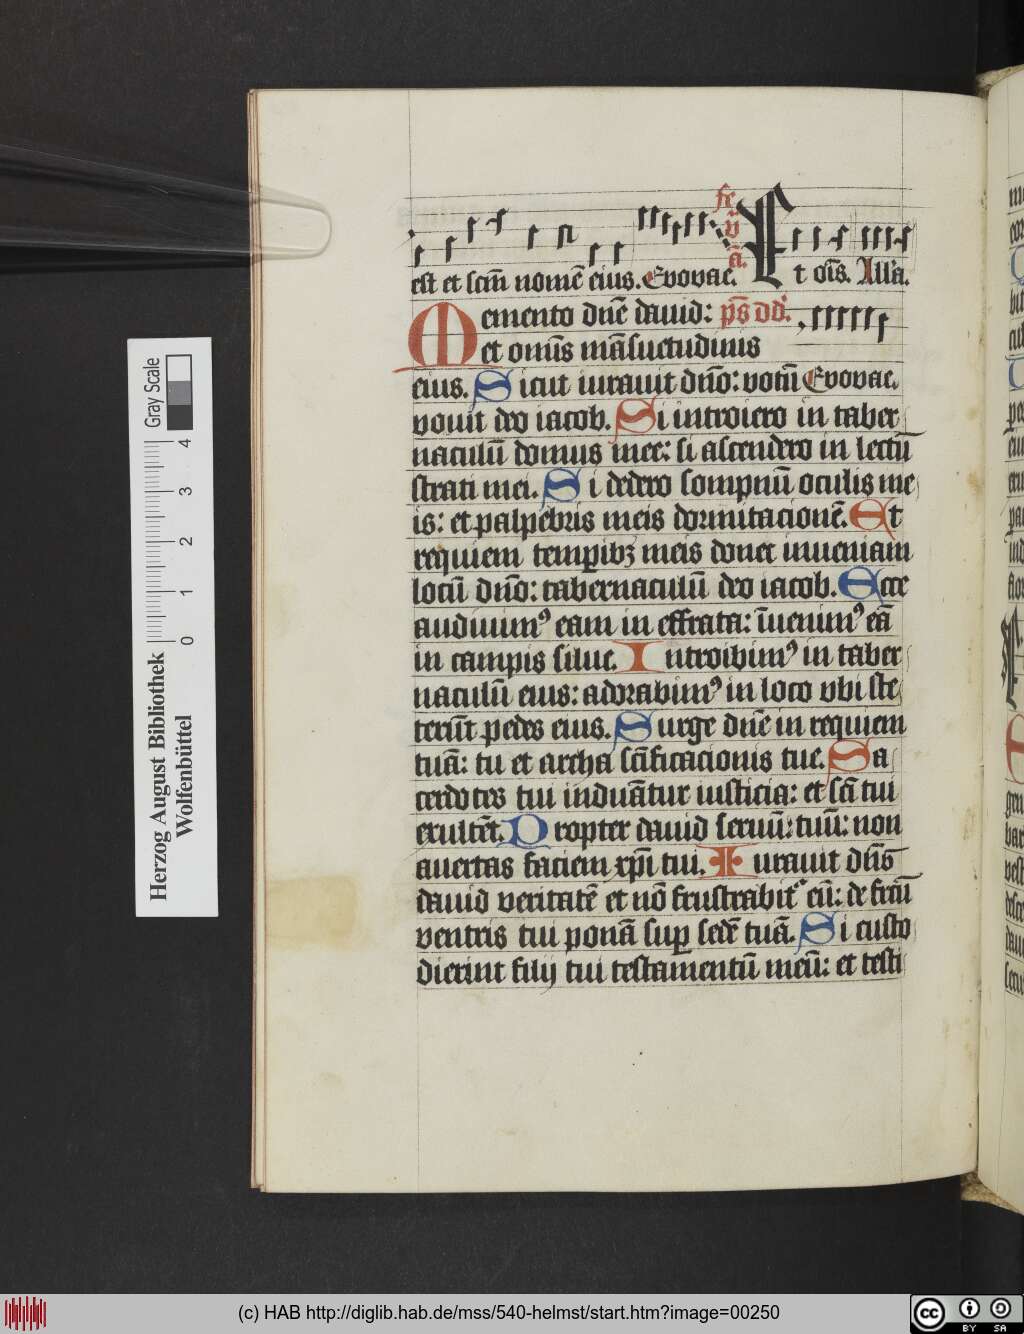 est et scm̄ nomē eius. Evovae. fe v̄ ā. Et oīs. All'a.
Memento dn̄e dauid: ps̄ dd'.
et om̄s māsuetudinis
eius. Sicut iurauit dn̄o: votū Evovae.
vouit deo iacob. Si introiero in taber
naculū domus mee: si ascendero in lectū
strati mei. Si dedero sompnū oculis me
is: et palpebris meis dormitacionē. Et
requiem temp̄ibꝫ meis donec inueniam
locū dn̄o: tabernaculū deo iacob. Ecce
audiuimꝰ eam in effrata: īuenimꝰ eā
in campis silue. Introibimꝰ in taber
naculū eius: adorabimꝰ in loco vbi ste
terūt pedes eius. Surge dn̄e in requiem
tuā: tu et archa sc̄ificacionis tue. Sa
cerdotes tui induātur iusticia: et sc̄i tui
exultēt. Propter dauid seruū: tuū: non
auertas faciem xp̄i tui. Iurauit dn̄s
dauid veritatē et nō frustrabit᷑ eū: de fructū
ventris tui ponā sup̄ sedē tuā. Si custo
dierint filij tui testamentū meū: et testi
Herzog August Bibliothek
Wolfenbüttel
0 1 2 3 4
Gray Scale
(c) HAB http://diglib.hab.de/mss/540-helmst/start.htm?image=00250
cc BY SA